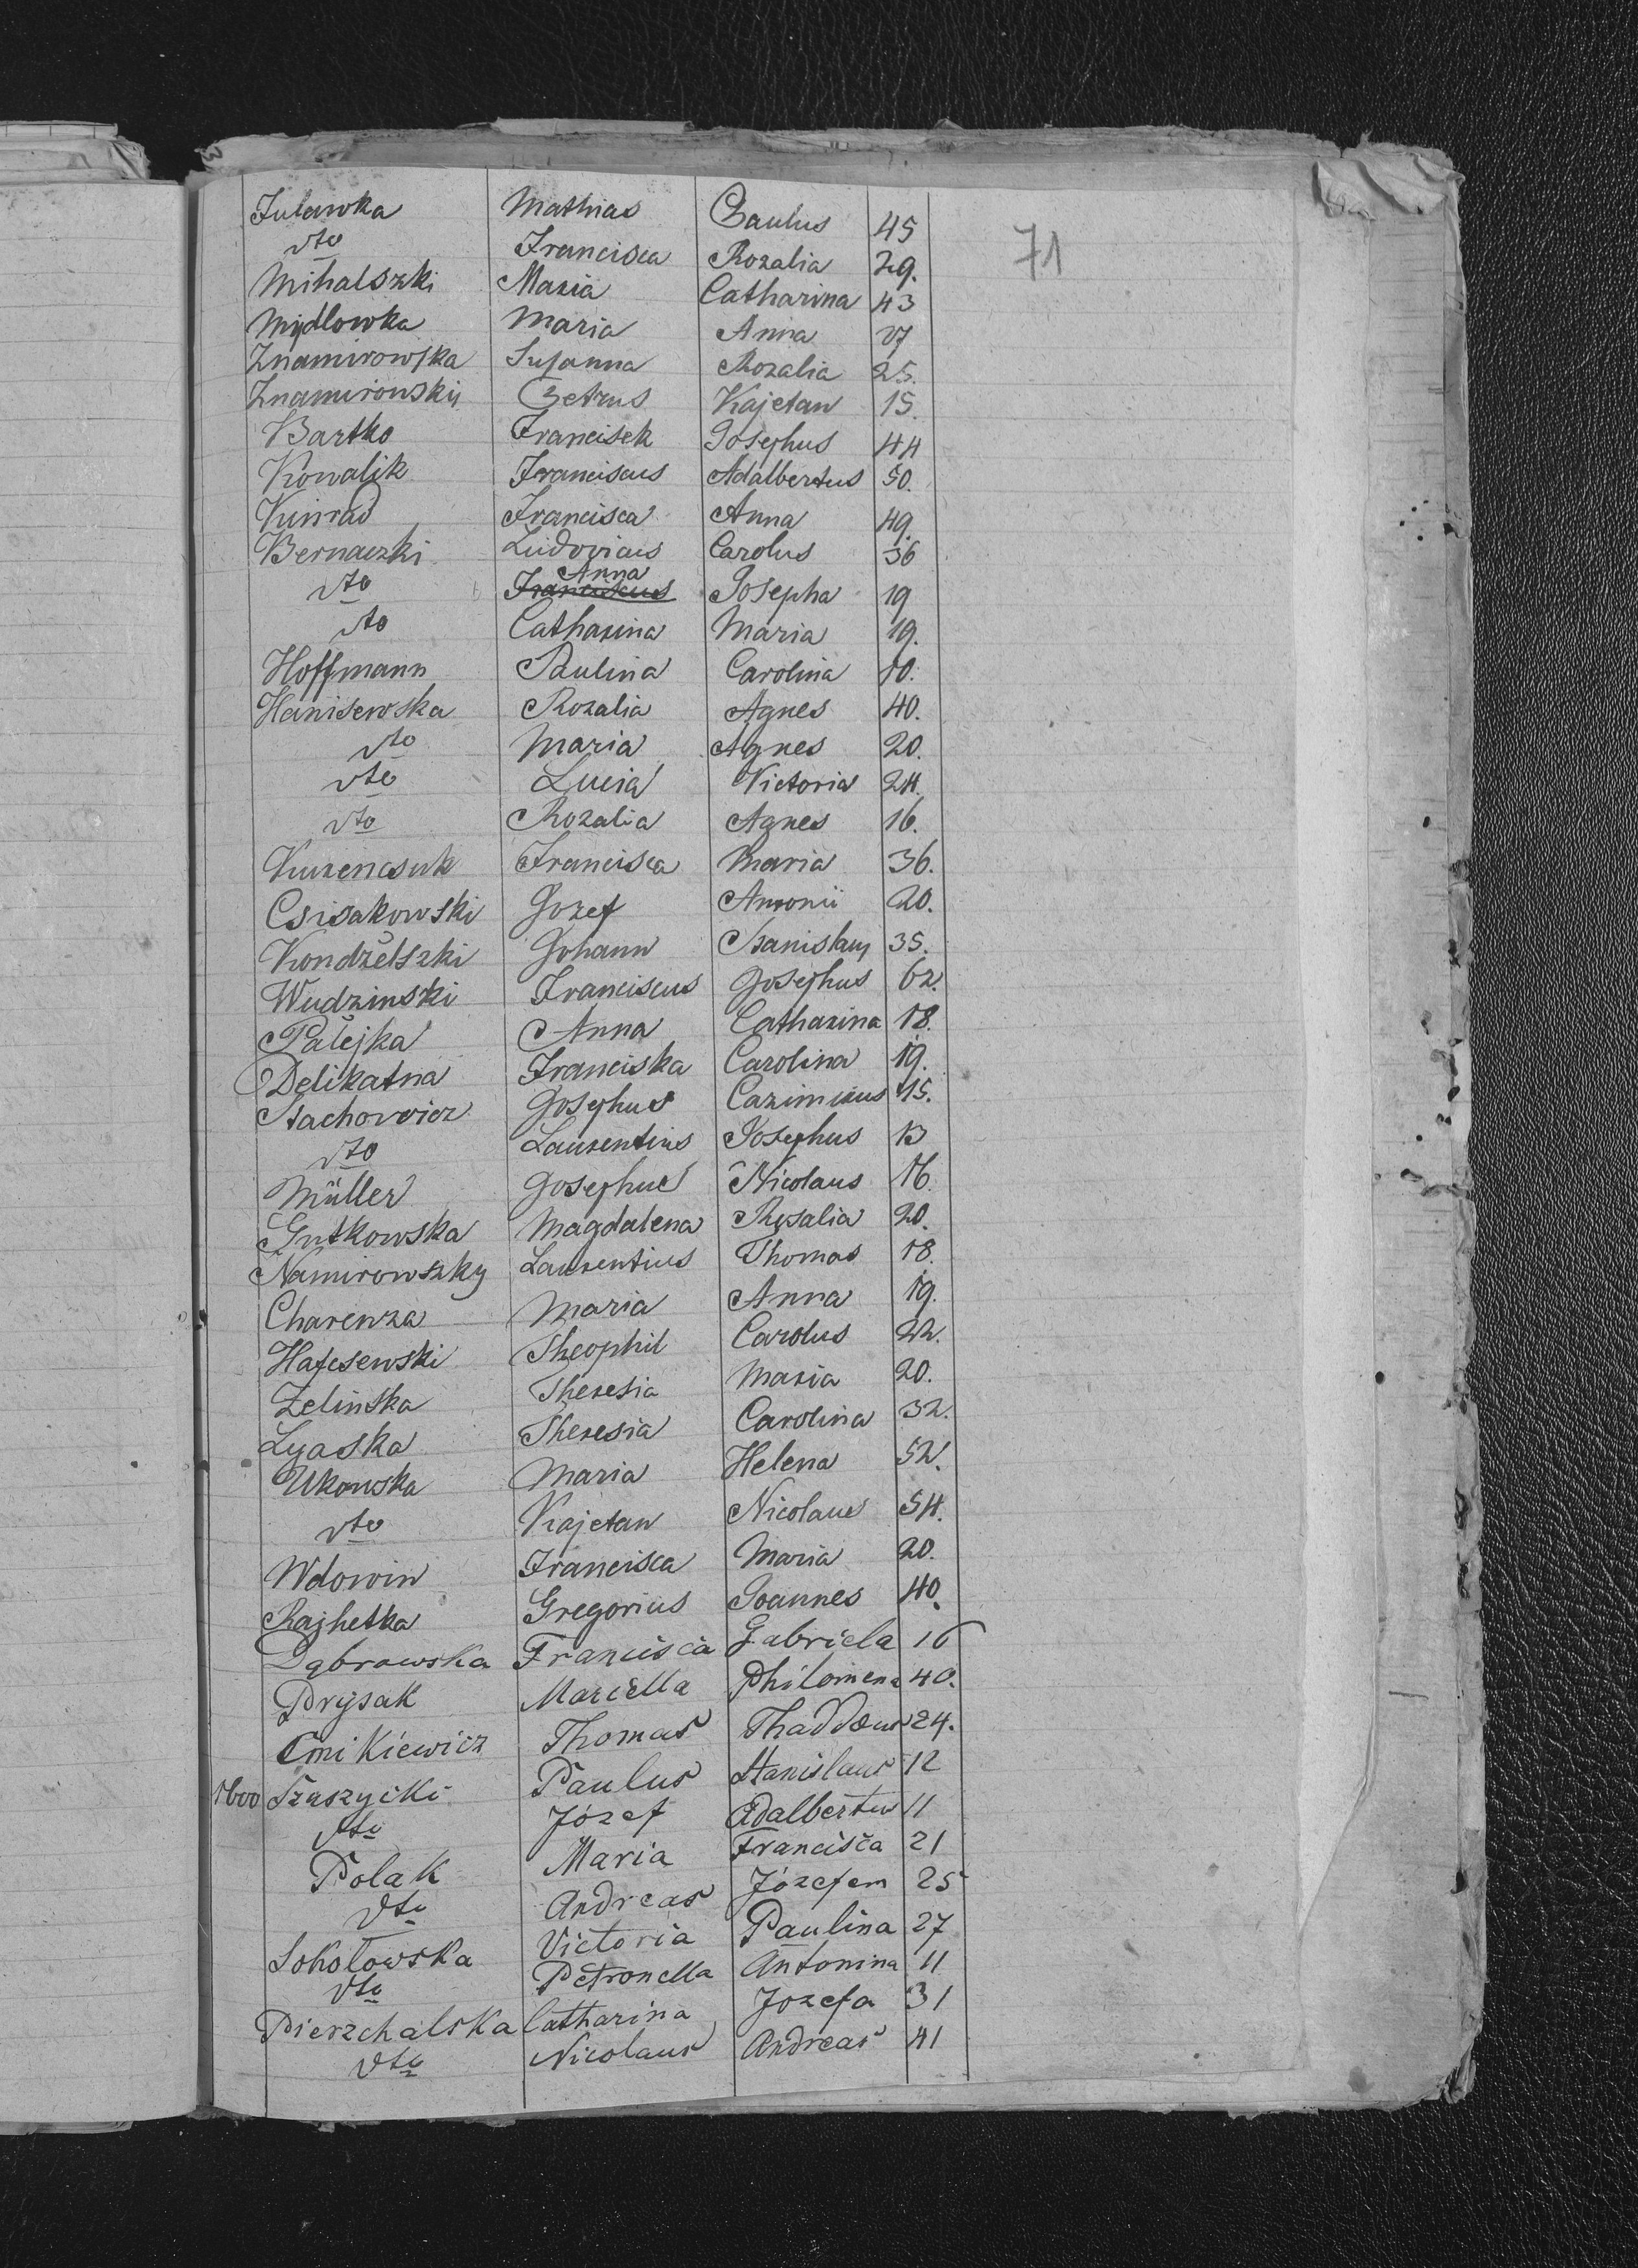 71
Julawka Mathias Paulus 45
dto Francisca Rozalia 29.
Mihalszki Maria Catharina 43
Mydlowka Maria Anna 27
Znamirowska Susanna Rozalia 25.
Znamirowskij Petrus Kajetan 15.
Bartko Francisek Josephus 44
Kowalik Franciscus Adalbertus 50.
Kinrad Francisca Anna 49.
Bernaczki Ludovicus Carolus 36
dto Franciscus Anna Josepha 19
dto Catharina Maria 19.
Hoffmann Paulina Carolina 10.
Hanisewska Rozalia Agnes 40.
dto Maria Agnes 20.
dto Lucia Victoria 24.
dto Rozalia Agnes 16.
Kurencsuk Francisca Maria 36.
Csisakowski Jozef Antonii 20.
Kondzelszki Johann Stanislaus 35.
Wudzinski Franciscus Josephus 62.
Palejka Anna Catharina 18.
Delikatna Franciska Carolina 19.
Stachowicz Josephus Cazimirus 15.
dto Laurentius Josephus 13
Müller Josephus Nicolaus 16.
Gutkowska Magdalena Rosalia 20.
Namirowszky Laurentius Thomas 18.
Charenza Maria Anna 19.
Hajesewski Theophil Carolus 22.
Zelinska Theresia Maria 20.
Lyaska Theresia Carolina 32.
Ukowska Maria Helena 52.
dto Kajetan Nicolaus 54.
Wdowin Francisca Maria 20.
Rajhetka Gregorius Joannes 40.
Dąbrowska Francisca Gabriela 16
Prysak Marcella Philomena 40.
Cmikiewicz Thomas Thaddeus 24.
1600 Szaszycki Paulus Stanislaus 12
dto Józef Adalbertus 11
Polak Maria Francisca 21
dto Andreas Józefem 25
Sokołowska Victoria Paulina 27
dto Petronella Antonina 11
Pierzchalska Catharina Jozefa 31
dto Nicolaus Andreas 41